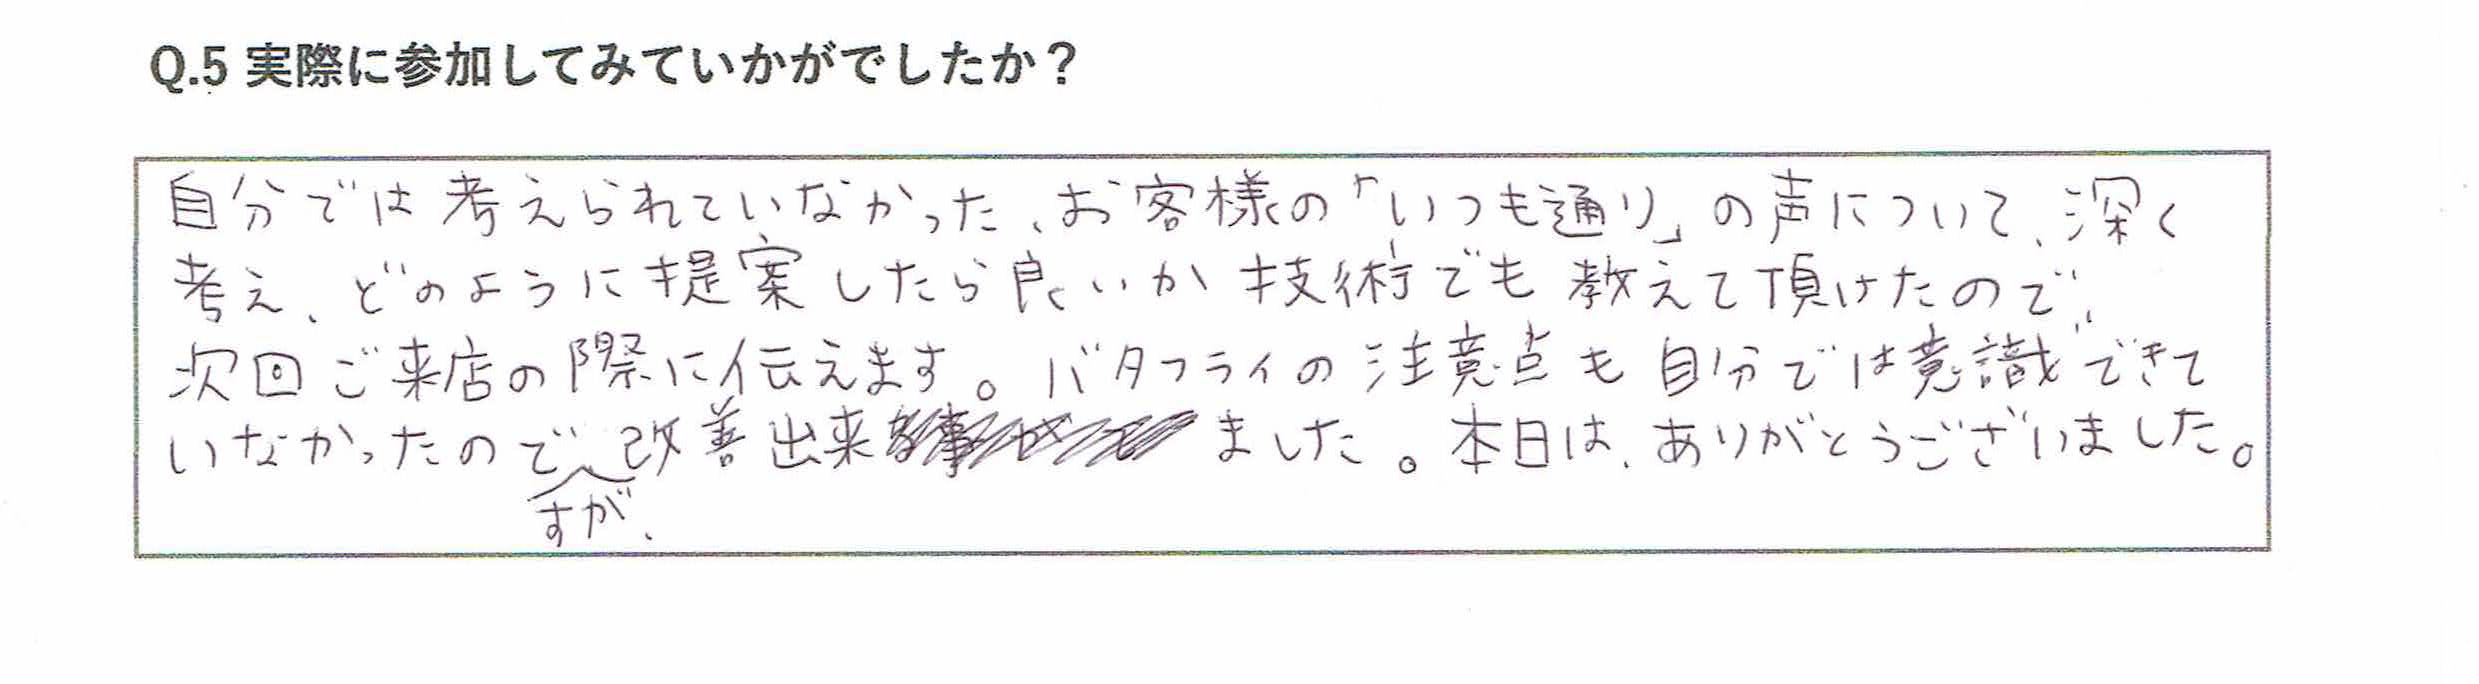 Q.5 実際に参加してみていかがでしたか？
自分では考えられていなかった、お客様の「いつも通り」の声について、深く
考え、どのように提案したら良いか技術でも教えて頂けたので、
次回ご来店の際に伝えます。バタフライの注意点も自分では意識できて
いなかったので、改善出来ました。本日は、ありがとうございました。
すが、